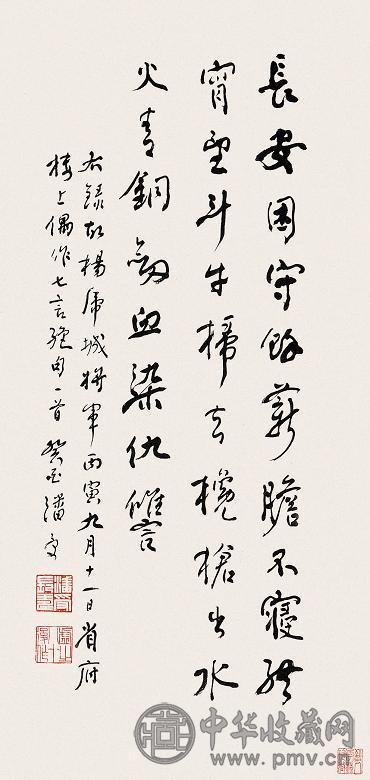 長安困守臥薪膽不寢終
宵望斗牛掃去欃槍出水
火青銅劍血染仇讎
右錄故楊虎城將軍丙寅九月十一日省府
樓上偶作七言絕句一首 癸酉潘受
中华收藏网
www.pmv.cn